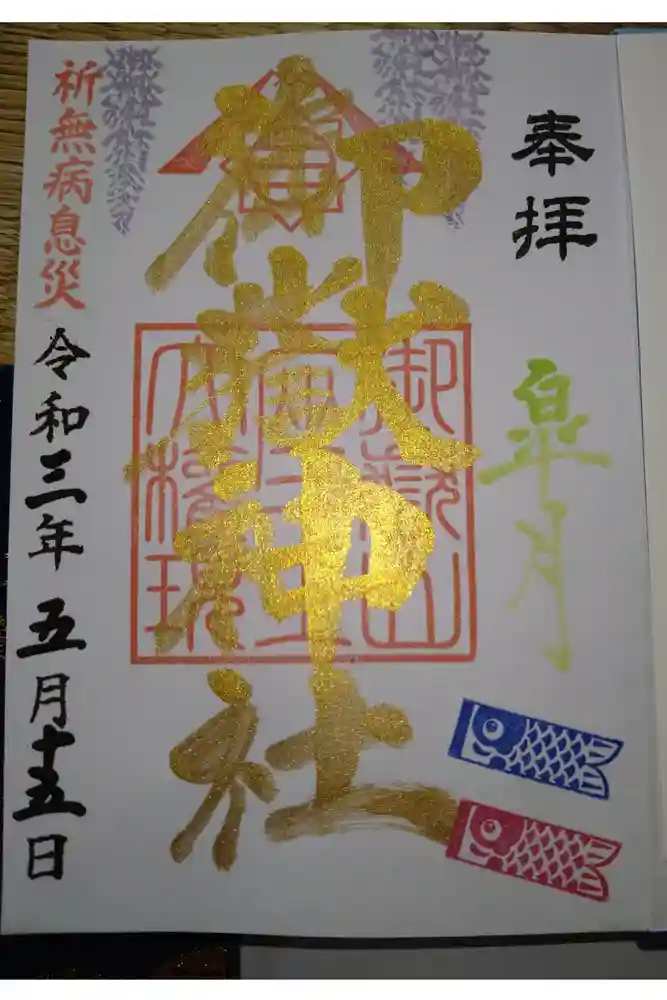 奉拝
皐月
御嶽神社
祈無病息災
令和三年 五月十五日